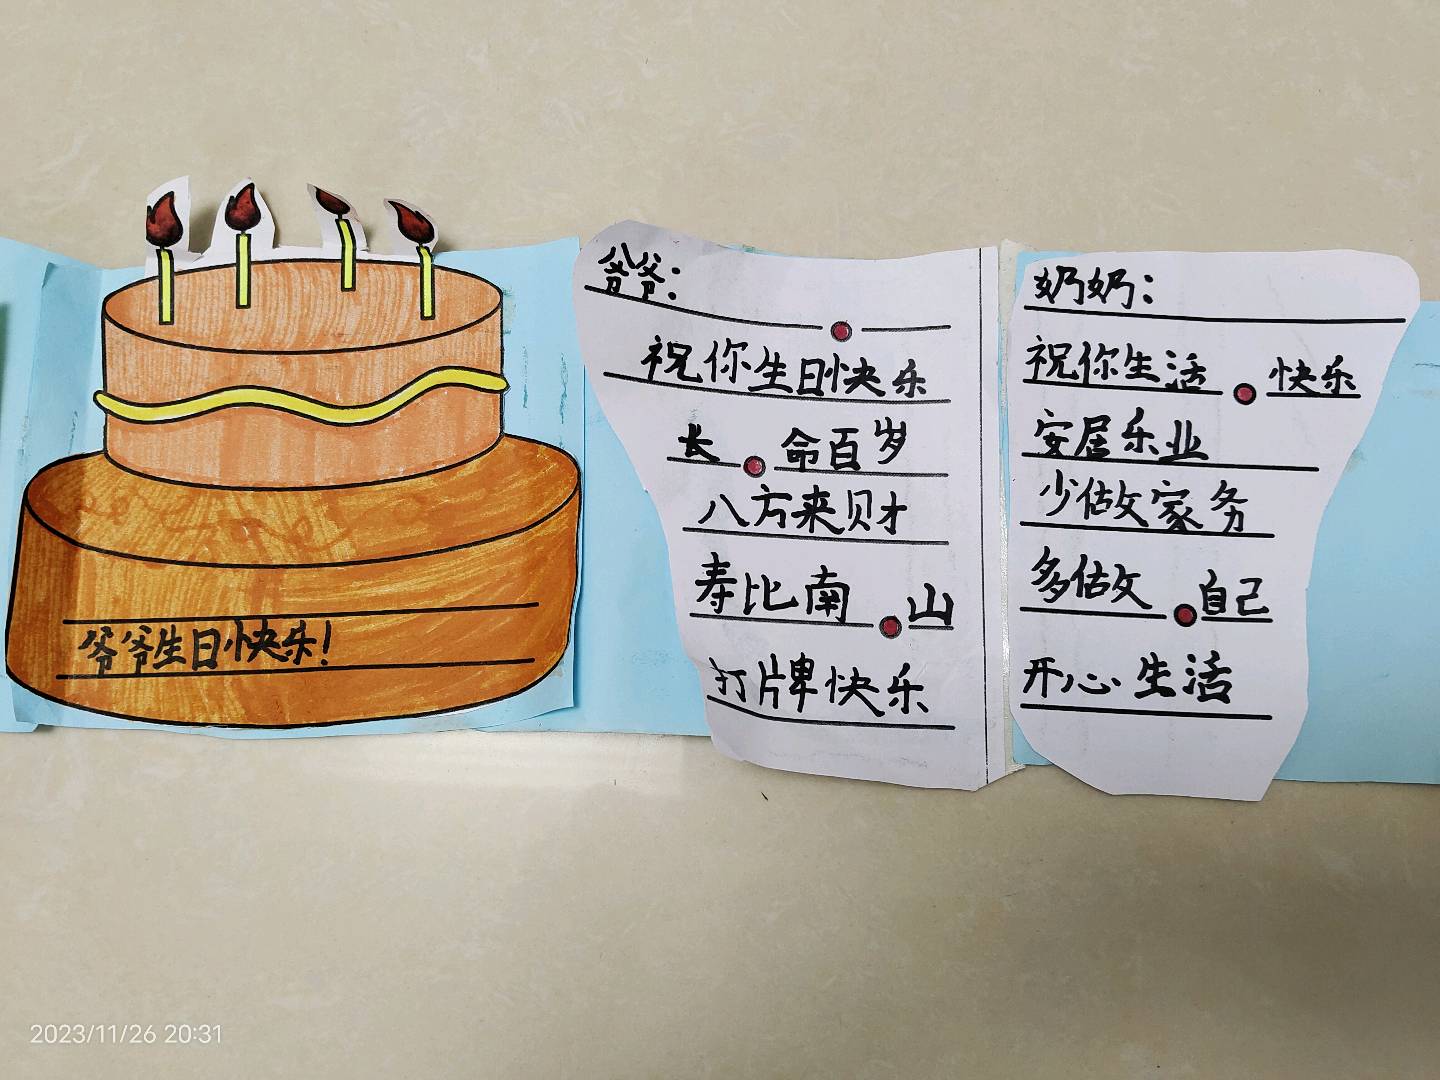 爷爷生日快乐!
爷爷:
祝你生日快乐
长命百岁
八方来财
寿比南山
打牌快乐
奶奶:
祝你生活快乐
安居乐业
少做家务
多做自己
开心生活
2023/11/26 20:31